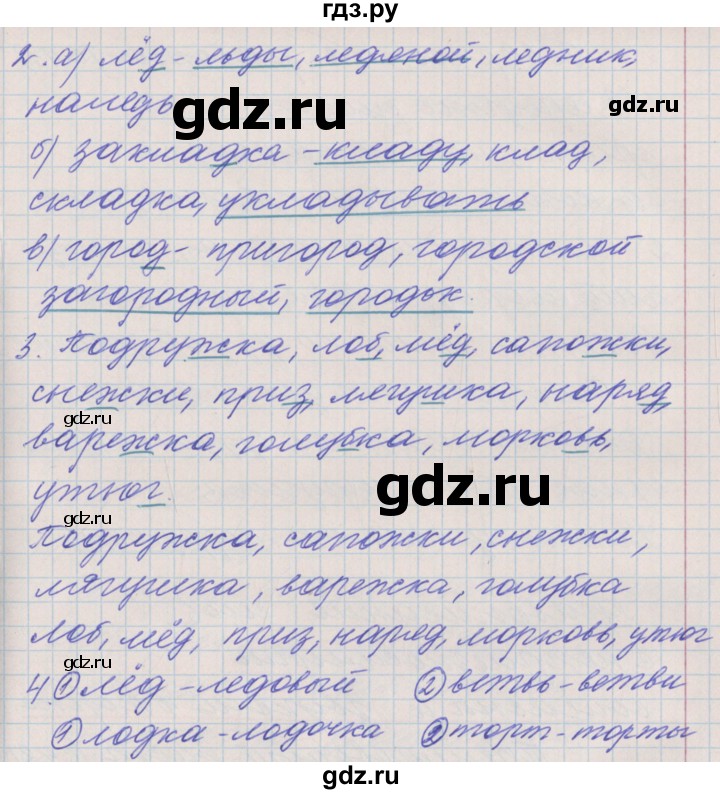 гдз.ру
2. а) лёд - льды, ледяной, ледник,
наледь
gdz.ru
gdz.ru
б) закладка - кладу, клад,
складка, укладывать
в) город - пригород, городской
загородный, городок.
3. Подружка, лоб, мёд, сапожки,
снежки, приз, лягушка, наряд,
gdz.ru
варежка, голубка, морковь,
gdz.ru
утюг.
gdz.ru
Подружка, сапожки, снежки,
лягушка, варежка, голубка
Лоб, мёд, приз, наряд, морковь, утюг
4. ① лёд - ледовый ② ветвь - ветви
① лодка - лодочка ② торт - торты
gdz.ru